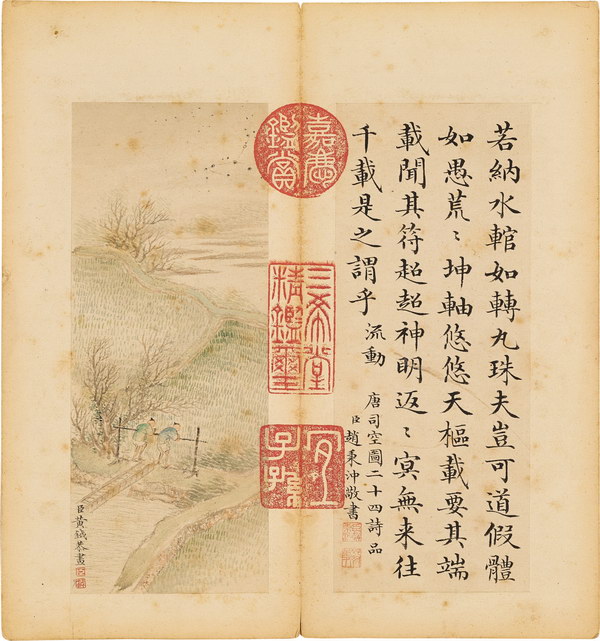 若納水輨如轉丸珠夫豈可道假體
如愚荒〻坤軸悠悠天樞載要其端
載聞其符超超神明返〻冥無来往
千載是之謂乎 流動
唐司空圖二十四詩品
臣趙秉沖敬書
嘉慶鑑賞
三希堂精鑑璽
宜子孫
臣黄鉞恭畫